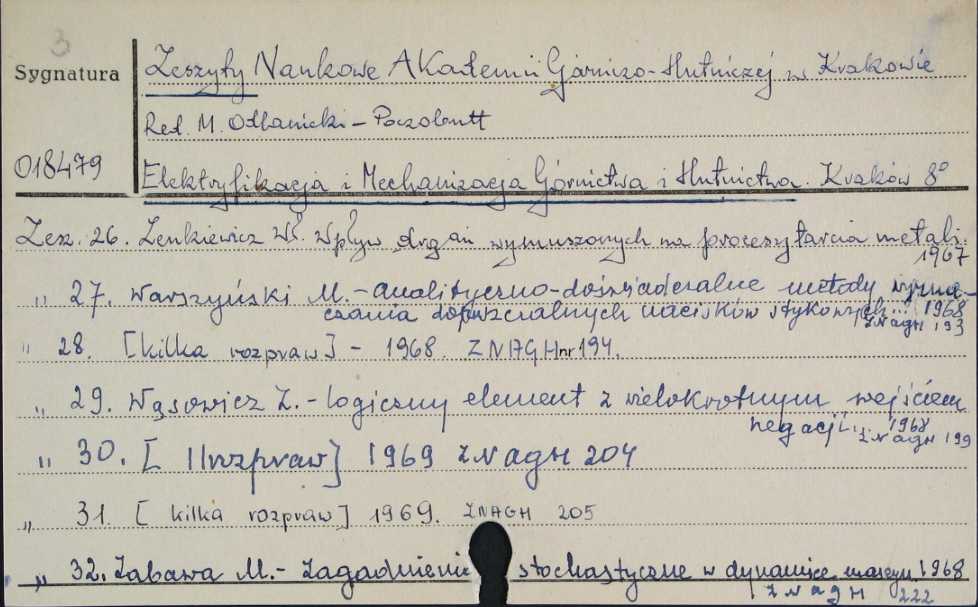 3
Sygnatura
Zeszyty Naukowe Akademii Górniczo-Hutniczej w Krakowie
Red. M. Odlanicki-Poczobutt
018479
Elektryfikacja i Mechanizacja Górnictwa i Hutnictwa. Kraków 8°
Zesz. 26. Lenkiewicz Wł. Wpływ drgań wymuszonych na procesy tarcia metali.
1967
„ 27. Warszyński M.-analityczno-doświadczalne metody wyzna-
czania dopuszczalnych nacisków stykowych... 1968
ZNAGH 193
" 28. [kilka rozpraw] - 1968. ZNAGH nr 194.
„ 29. Wąsowicz Z.-logiczny element z wielokrotnym wejściem
negacji... 1968
ZNAGH 199
" 30. [11 rozpraw] 1969 ZNAGH 204
„ 31. [kilka rozpraw] 1969. ZNAGH 205
„ 32. Zabawa M.- Zagadnienie stochastyczne w dynamice maszyn 1968
ZNAGH 222